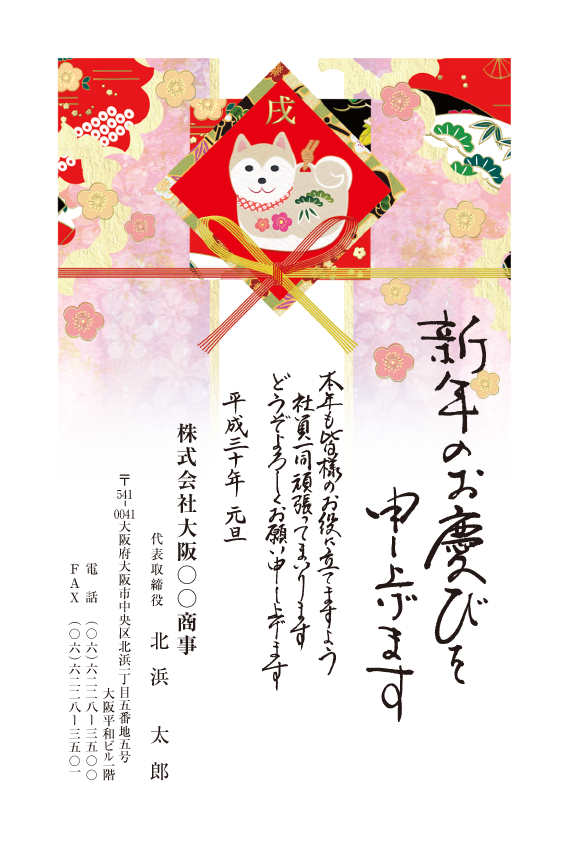 戌
新年のお慶びを
申し上げます
本年も皆様のお役に立てますよう
社員一同頑張ってまいります
どうぞよろしくお願い申し上げます
平成三十年 元旦
株式会社大阪〇〇商事
代表取締役 北浜 太郎
〒541-0041大阪府大阪市中央区北浜一丁目五番地五号
大阪平和ビル一階
電話 (〇六)六二二八ー三五〇〇
FAX (〇六)六二二八ー三五〇一